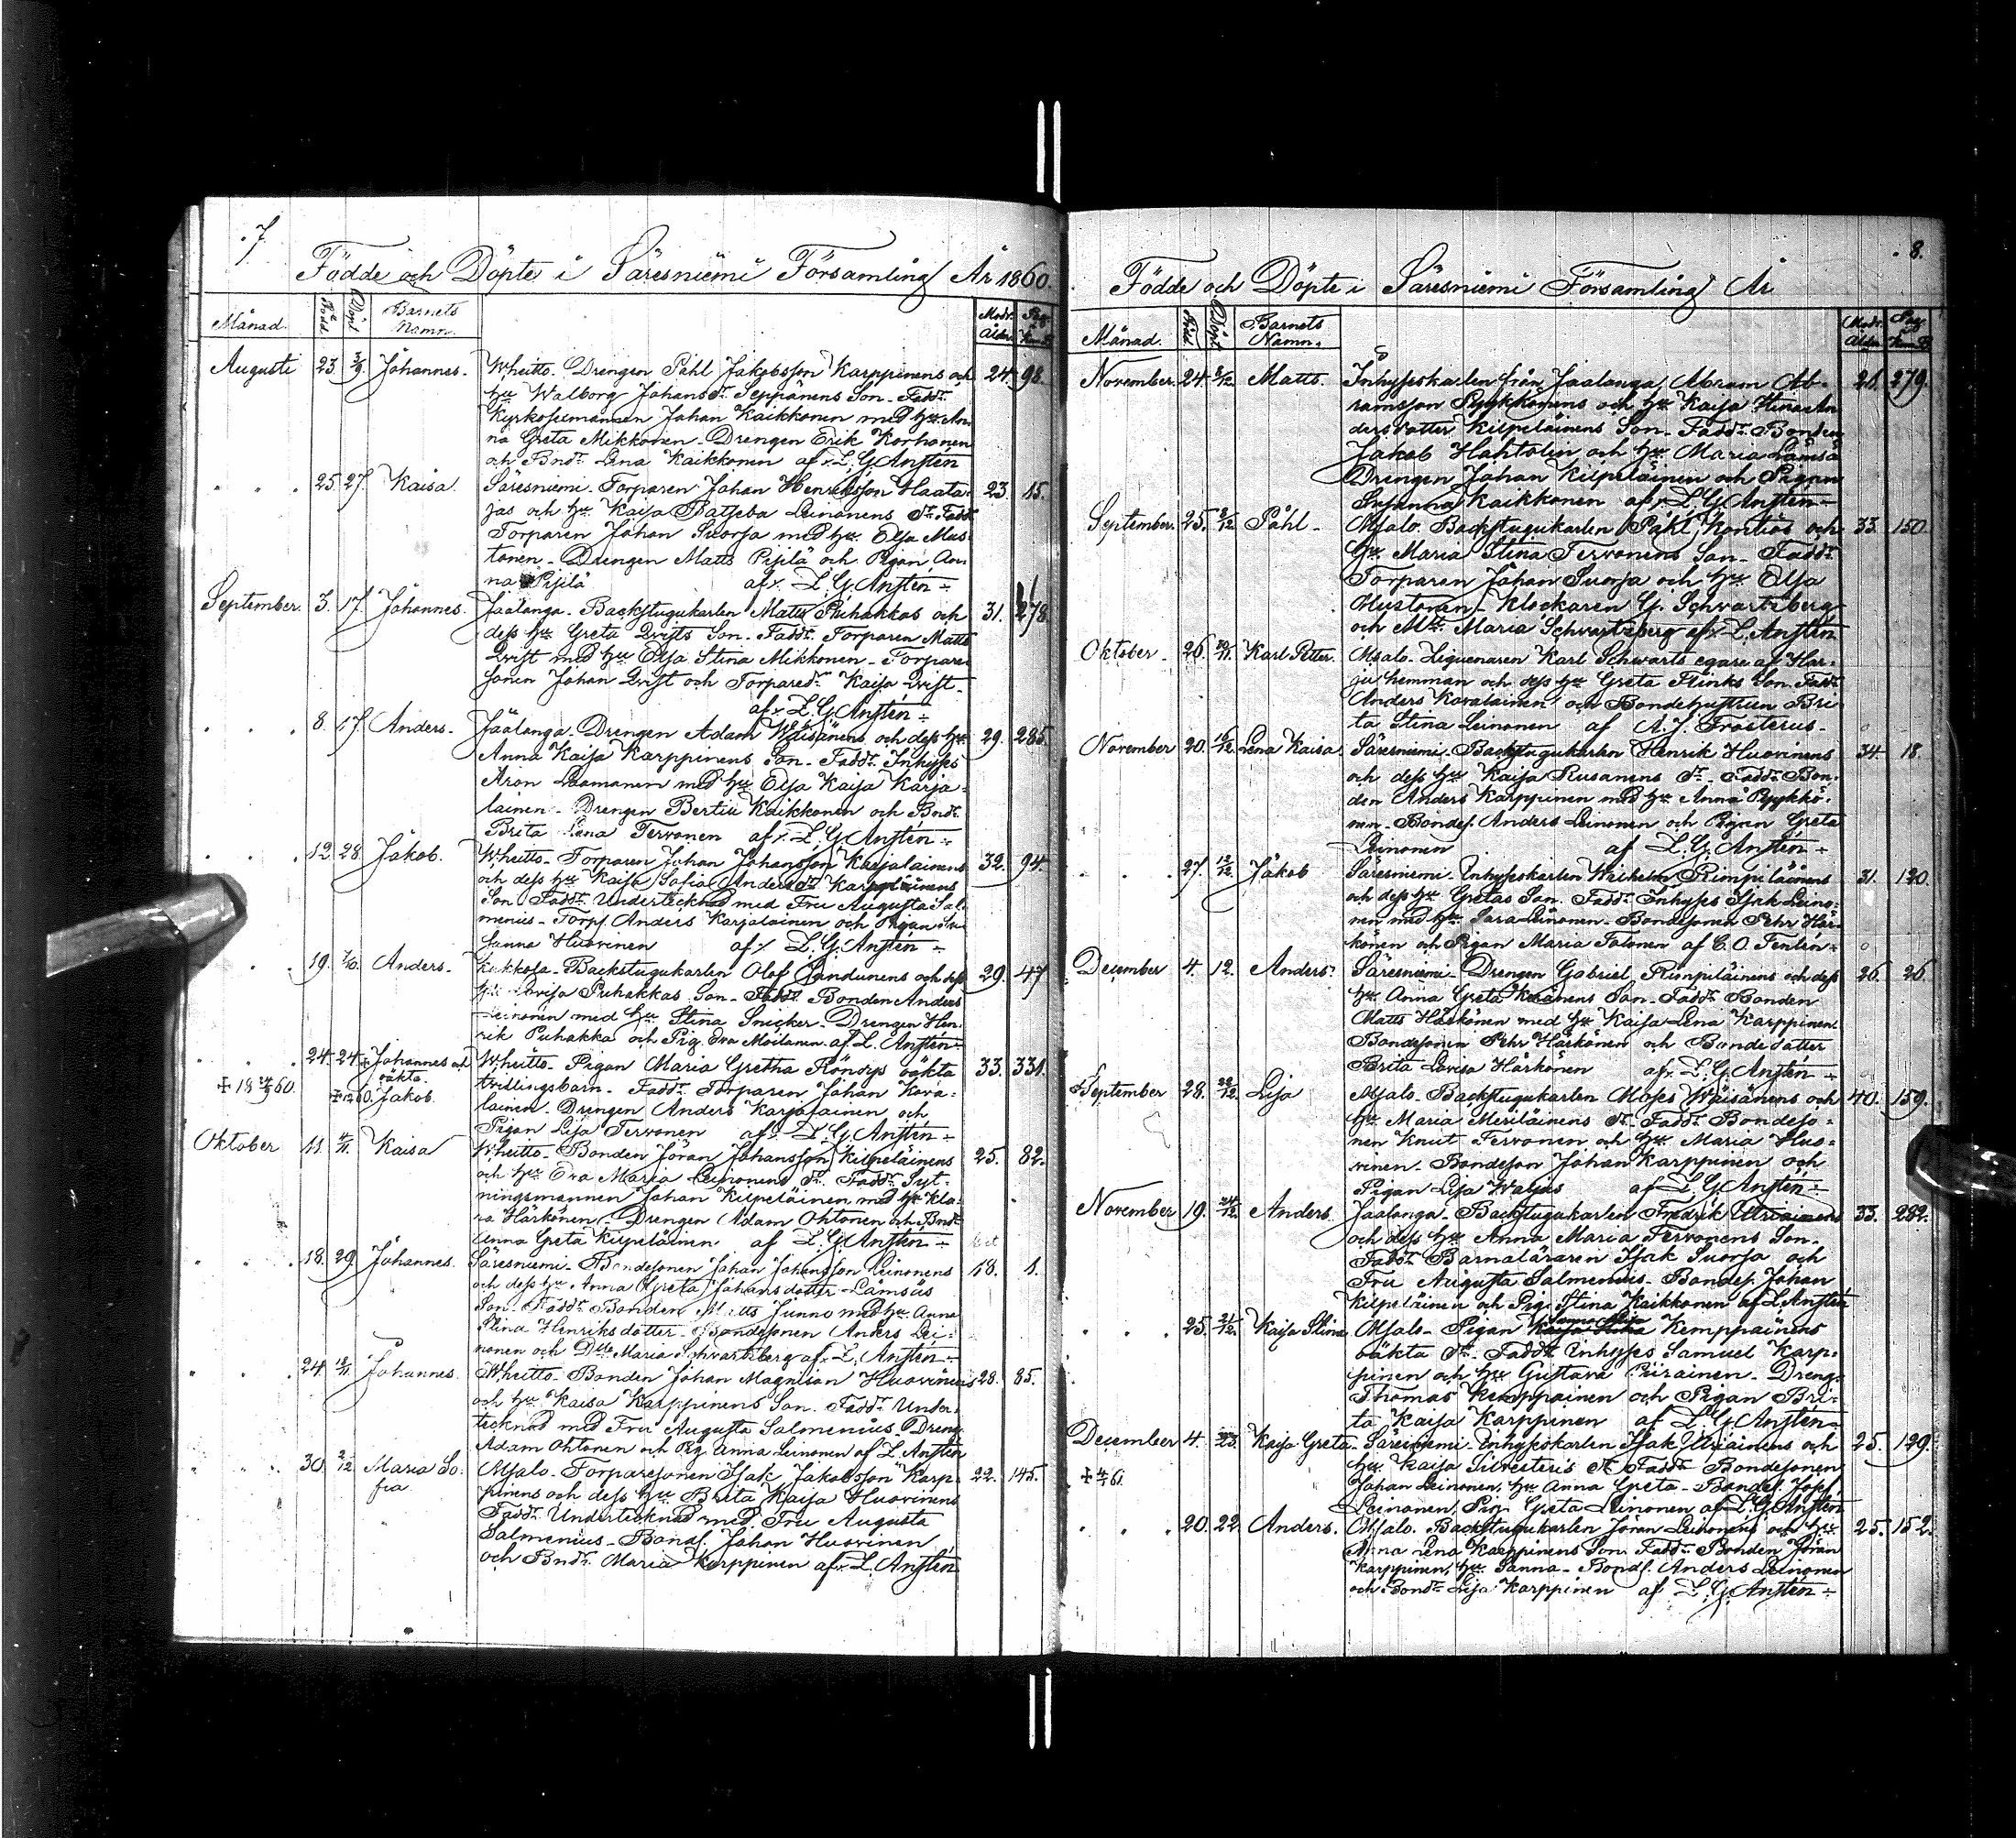 7
Födde och Döpte i Säresniemi Församling År 1860.
Månad. Född Döpt Barnets Namn. Modr. Ålder. Pag. Kom.B
Augusti 23. 3/9. Johannes. Wheitto. Drengen Påhl Jakobsson Karppinens och 24. 98.
hu Walborg Johansdr. Seppänens Son. Faddr.
Kyrkosexmannen Johan Kaikkonen med hu An-
na Greta Mikkonen. Drengen Erik Korhonen
och Bndr. Lena Kaikkonen af L. G. Anstén
25. 27. Kaisa. Säresniemi. Torparen Johan Henriksson Haata- 23. 15.
jas och hu Kaisa Leinonens Dr. Faddr.
Torparen Johan Suorsa med hu Elsa Mus-
tonen. Drengen Matts Pisilä och Pigan An-
na Pisilä af L. G. Anstén
September. 3. 17. Johannes. Jaalanga. Backstugukarlen Matts Puhakkas och 31. 278
dess hu Greta Qvists Son. Faddr. Torparen Matts
Qvist med hu Elsa Stina Mikkonen. Torpare-
sonen Johan Qvist och Torparedr. Kaisa Qvist.
af L. G. Anstén
8. 17. Anders. Jaalanga. Drengen Adam Wäisänens och dess hu 29. 285.
Anna Kaisa Karppinens Son. Faddr. Inhyses
Aron med hu Elsa Kaisa Karja-
lainen. Drengen Bertil Kaikkonen och Bndr.
Brita Lena Tervonen af L. G. Anstén
12. 28. Jakob. Wheitto. Torparen Johan Johansson Karjalainens 32. 94.
och dess hu Kaisa Sofia Andersdr. Karppinens
Son. Faddr. Undertecknad med Fru Augusta Sal-
menius. Torps. Anders Karjalainen och Pigan Su-
sanna Huovinen af L. G. Anstén
19. 7/10. Anders. Kukkola. Backstugukarlen Olof Jandunens och dess 29. 47
hu Lovisa Puhakkas Son. Faddr. Bonden Anders
Leinonen med hu Stina Snicker. Drengen Hen-
rik Puhakka och Pig. Eva Moilanen af L. Anstén
24. 24. Johannes och Wheitto. Pigan Maria Gretha Röndys oäkta 33. 331.
oäkta.
Jakob. tvillingsbarn. Faddr. Torparen Johan Karja-
lainen. Drengen Anders Karjalainen och
Pigan Lisa Tervonen af L. G. Anstén
Oktober 11. 4/11. Kaisa Wheitto. Bonden Jöran Johansson Kilpeläinens 25. 82.
och hu Eva Maria Leinonens Dr. Faddr. Syt-
ningsmannen Johan Kilpeläinen med hu Kla-
ra Härkönen. Drengen Adam Ohtonen och Bndr.
Anna Greta Kilpeläinen af L. G. Anstén
18. 29. Johannes. Säresniemi. Bondesonen Johan Johansson Leinonens 18. 1.
och dess hu Anna Greta Johansdotter Lämsäs
Son. Faddr. Bonden Matts Junno med hu Anna
Stina Henriksdotter. Bondesonen Anders Lei-
nonen och Dlle Maria Schvartzberg af L. Anstén
24. 18/11. Johannes. Wheitto. Bonden Johan Magnison Huovinens 28. 85.
och hu Kaisa Karppinens Son. Faddr. Under-
tecknad med Fru Augusta Salmenius. Dreng.
Adam Ohtonen och Pig. Anna Leinonen af L. Anstén
30. 2/12. Maria So- Alsalo. Torparesonen Isak Jakobsson Karp- 22. 145.
fia pinens och dess hu Brita Kaisa Huovinens
Faddr. Undertecknad med Fru Augusta
Salmenius. Bonds. Johan Huovinen
och Bndr. Maria Karppinen af L. Anstén
8.
Födde och Döpte i Säresniemi Församling År
Månad. Född Döpt Barnets Namn. Modr. Ålder Pag. Kom.B
November. 24. 2/12. Matts. Inhyseskarlen från Jaalanga, Abram Ab- 26. 279.
ramsson Pyykkönens och hu Kaisa Stina An-
dersdotter Kilpeläinens Son. Faddr. Bonden
Jakob Hahtolin och hu Maria Lämsä
Drengen Johan Kilpeläinen och Pigan
Susanna Kaikkonen af L. G. Anstén
September. 25. 2/12 Påhl. Alsalo. Backstugukarlen Påhl Kontios och 33. 150
hu Maria Stina Tervonens Son. Faddr.
Torparen Johan Suorsa och hu Elsa
Mustonen. Klockaren G. Schvartzberg
och Maria Schvartzberg af L. Anstén
Oktober. 26. Karl Petter. Alsalo. Karl Schwarts egare af Har-
ju hemman och dess hu Greta Flinks Son. Faddr.
Anders Karalainen och Bondehustrun Bri-
ta Stina Leinonen af A. J. Frosterus.
November 20. Lena Kaisa. Säresniemi. Backstugukarlen Henrik Huovinens 34. 18.
och dess hu Kaisa Rusanens Dr. Faddr. Bon-
den Anders Karppinen med hu Anna Pyykkö-
nen. Bondes. Anders Leinonen och Pigan Greta
Leinonen af L. G. Anstén
27. 12/12 Jakob Säresniemi. Inhyseskarlen Wilhelm Rimpiläinens 31. 120.
och dess hu Gretas Son. Faddr. Inhyses Isak Leino-
nen med hu Sara Leinonen. Bondesonen Pehr Här-
könen och Pigan Maria Tolonen af C. O. Fenlén
December 4. 12. Anders. Säresniemi. Drengen Gabriel Rimpiläinens och dess 26. 26.
hu Anna Greta Keränens Son. Faddr. Bonden
Matts Härkönen med hu Kaisa Lena Karppinen.
Bondesonen Pehr Härkönen och Bondedotter
Brita Lovisa Härkönen af L. G. Anstén
September 28. Lisa Alsalo. Backstugukarlen Moses Wäisänens och 40. 159.
hu Maria Meriläinens Dr. Faddr. Bondeso-
nen Knut Tervonen och hu Maria Huo-
vinen. Bondeson Johan Karppinen och
Pigan Lisa af L. G. Anstén
November 19. Anders. Jaalanga. Backstugukarlen Fredrik Utriainens 33. 282.
och dess hu Anna Maria Tervonens Son.
Faddr. Barnaläraren Isak Suorsa och
Fru Augusta Salmenius. Bondes. Johan
Kilpeläinen och Pig. Stina Kaikkonen af L. Anstén
25. Kaisa Stina. Alsalo. Pigan Kaisa Stina Kemppainens
oäkta Dr. Faddr. Inhyses Samuel Karp-
pinen och hu Gustava Piirainen. Dreng.
Thomas Kemppainen och Pigan Bri-
ta Kaisa Karppinen af L. G. Anstén
December 4. 23. Kaisa Greta. Säresniemi. Inhyseskarlen Isak Utriainens och 25. 129.
hu Kaisa Silvesteris Dr. Faddr. Bondesonen
Johan Leinonen, hu Anna Greta. Bondes. Josef
Leinonen, Pig. Greta Leinonen af L. G. Anstén
20. 22. Anders. Alsalo. Backstugukarlen Jöran Leinonens och hu 25. 152.
Anna Lena Karppinens Son. Faddr. Bonden Jöran
Karppinen, hu Sanna. Bonds. Anders Leinonen
och Bondr. Lisa Karppinen af L. G. Anstén